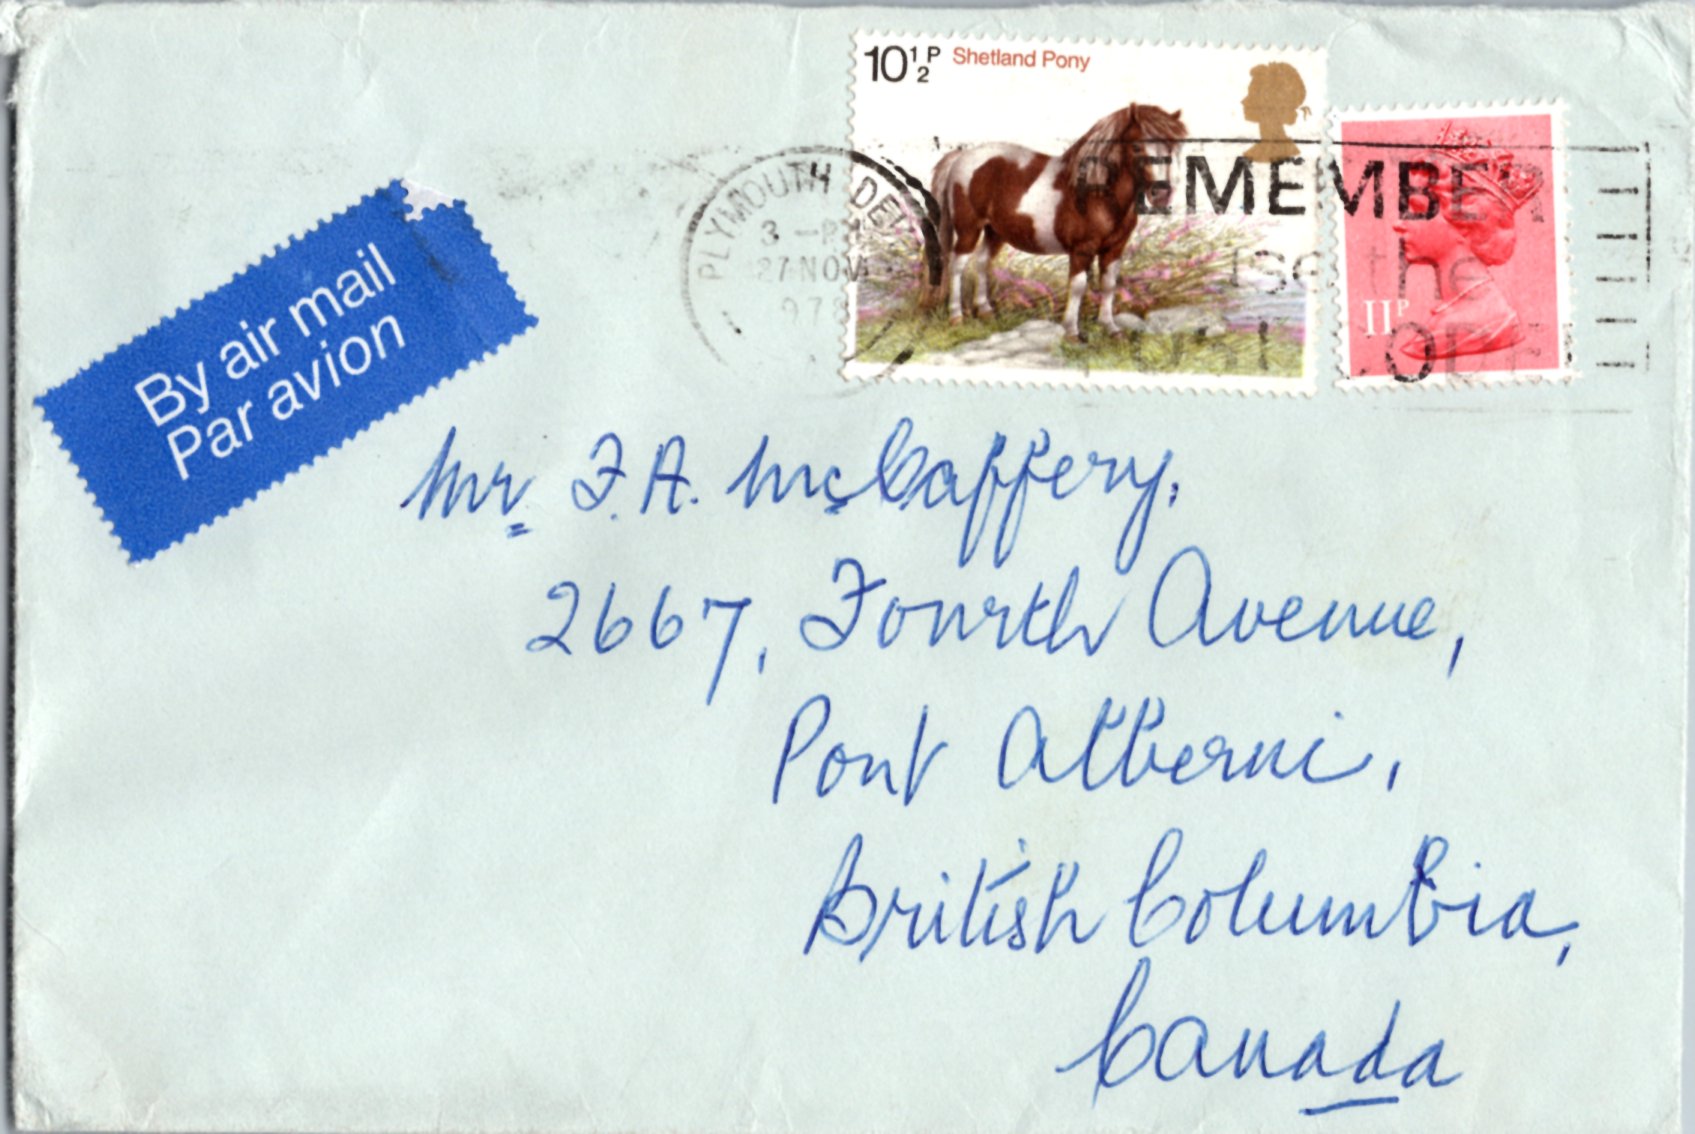 10½P Shetland Pony
11P
PLYMOUTH DEV
3 -P
27 NOV
1978
REMEMBER
use the
Post Code
By air mail
Par avion
Mr. F. A. McCaffery,
2667, Fourth Avenue,
Port Alberni,
British Columbia,
Canada